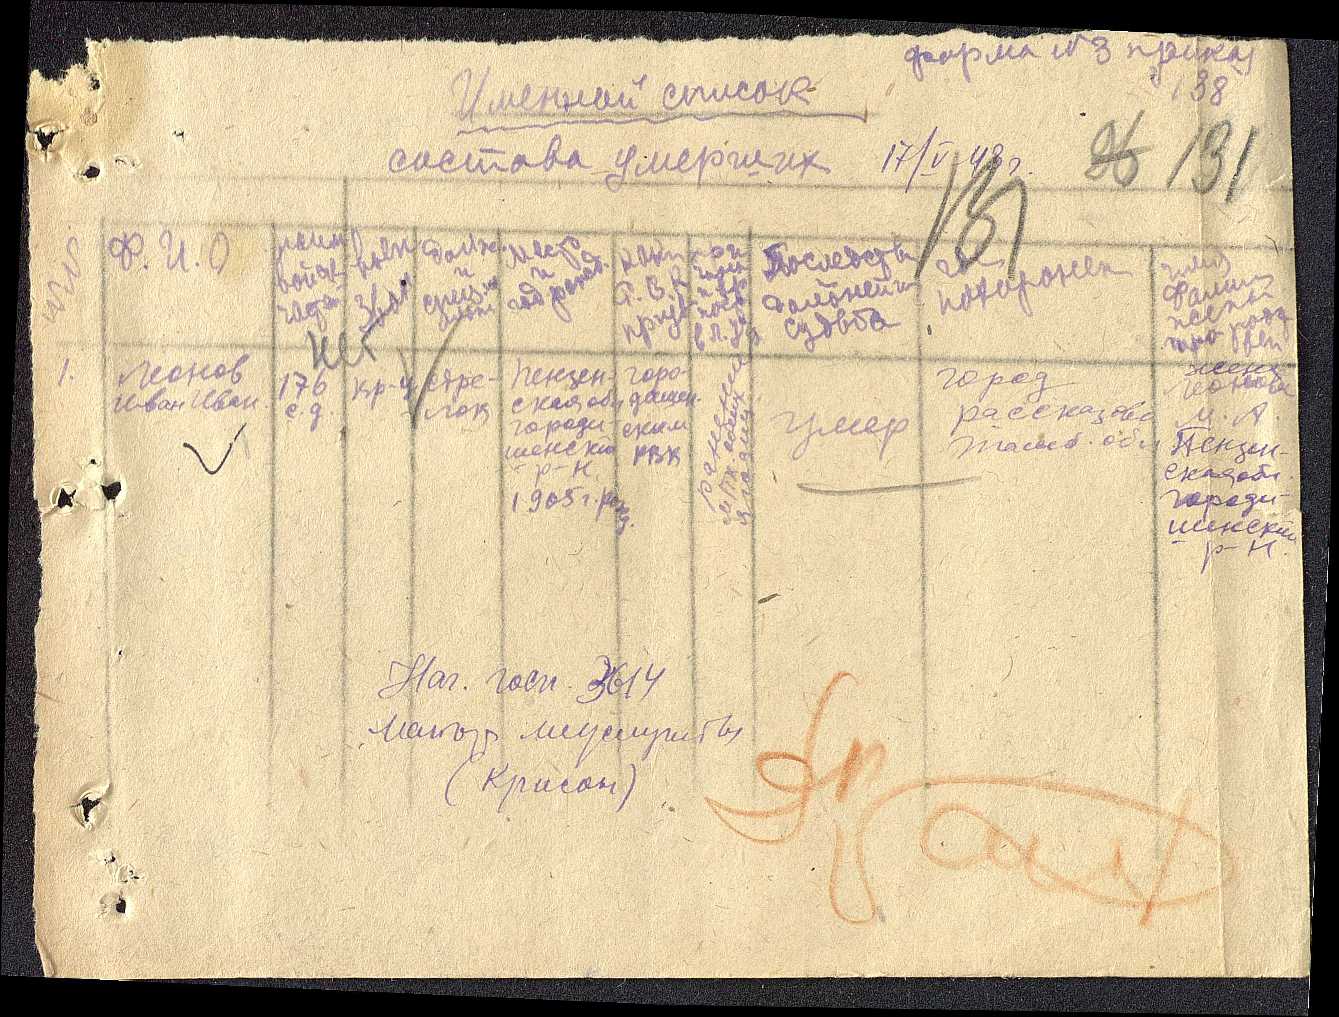 форма №3 приказ
138
Именной список
состава умерших 17/V 43 г.
26 131
131
№№
Ф. И. О
наим
войск
части
воен
зван
должн
и
спец
место
и
год рожд.
каким
Р.В.К
призв
Последств
дальнейш
судьба
где
похоронен
имя
фамил
жены
нет
1.
Леонов
Иван Иван.
176
с.д.
кр-ц
стре-
лок
Пензен-
ская обл
городи
щенский
р-н
1905 г. рожд.
горо-
дищен
ским
РВК
умер
город
рассказово
Тамб. обл
жена
Леонова
М. А.
Пензен-
ская обл.
городи-
щенский
р-н.
Нач. госп. 3614
майор медслужбы
(Крисон)